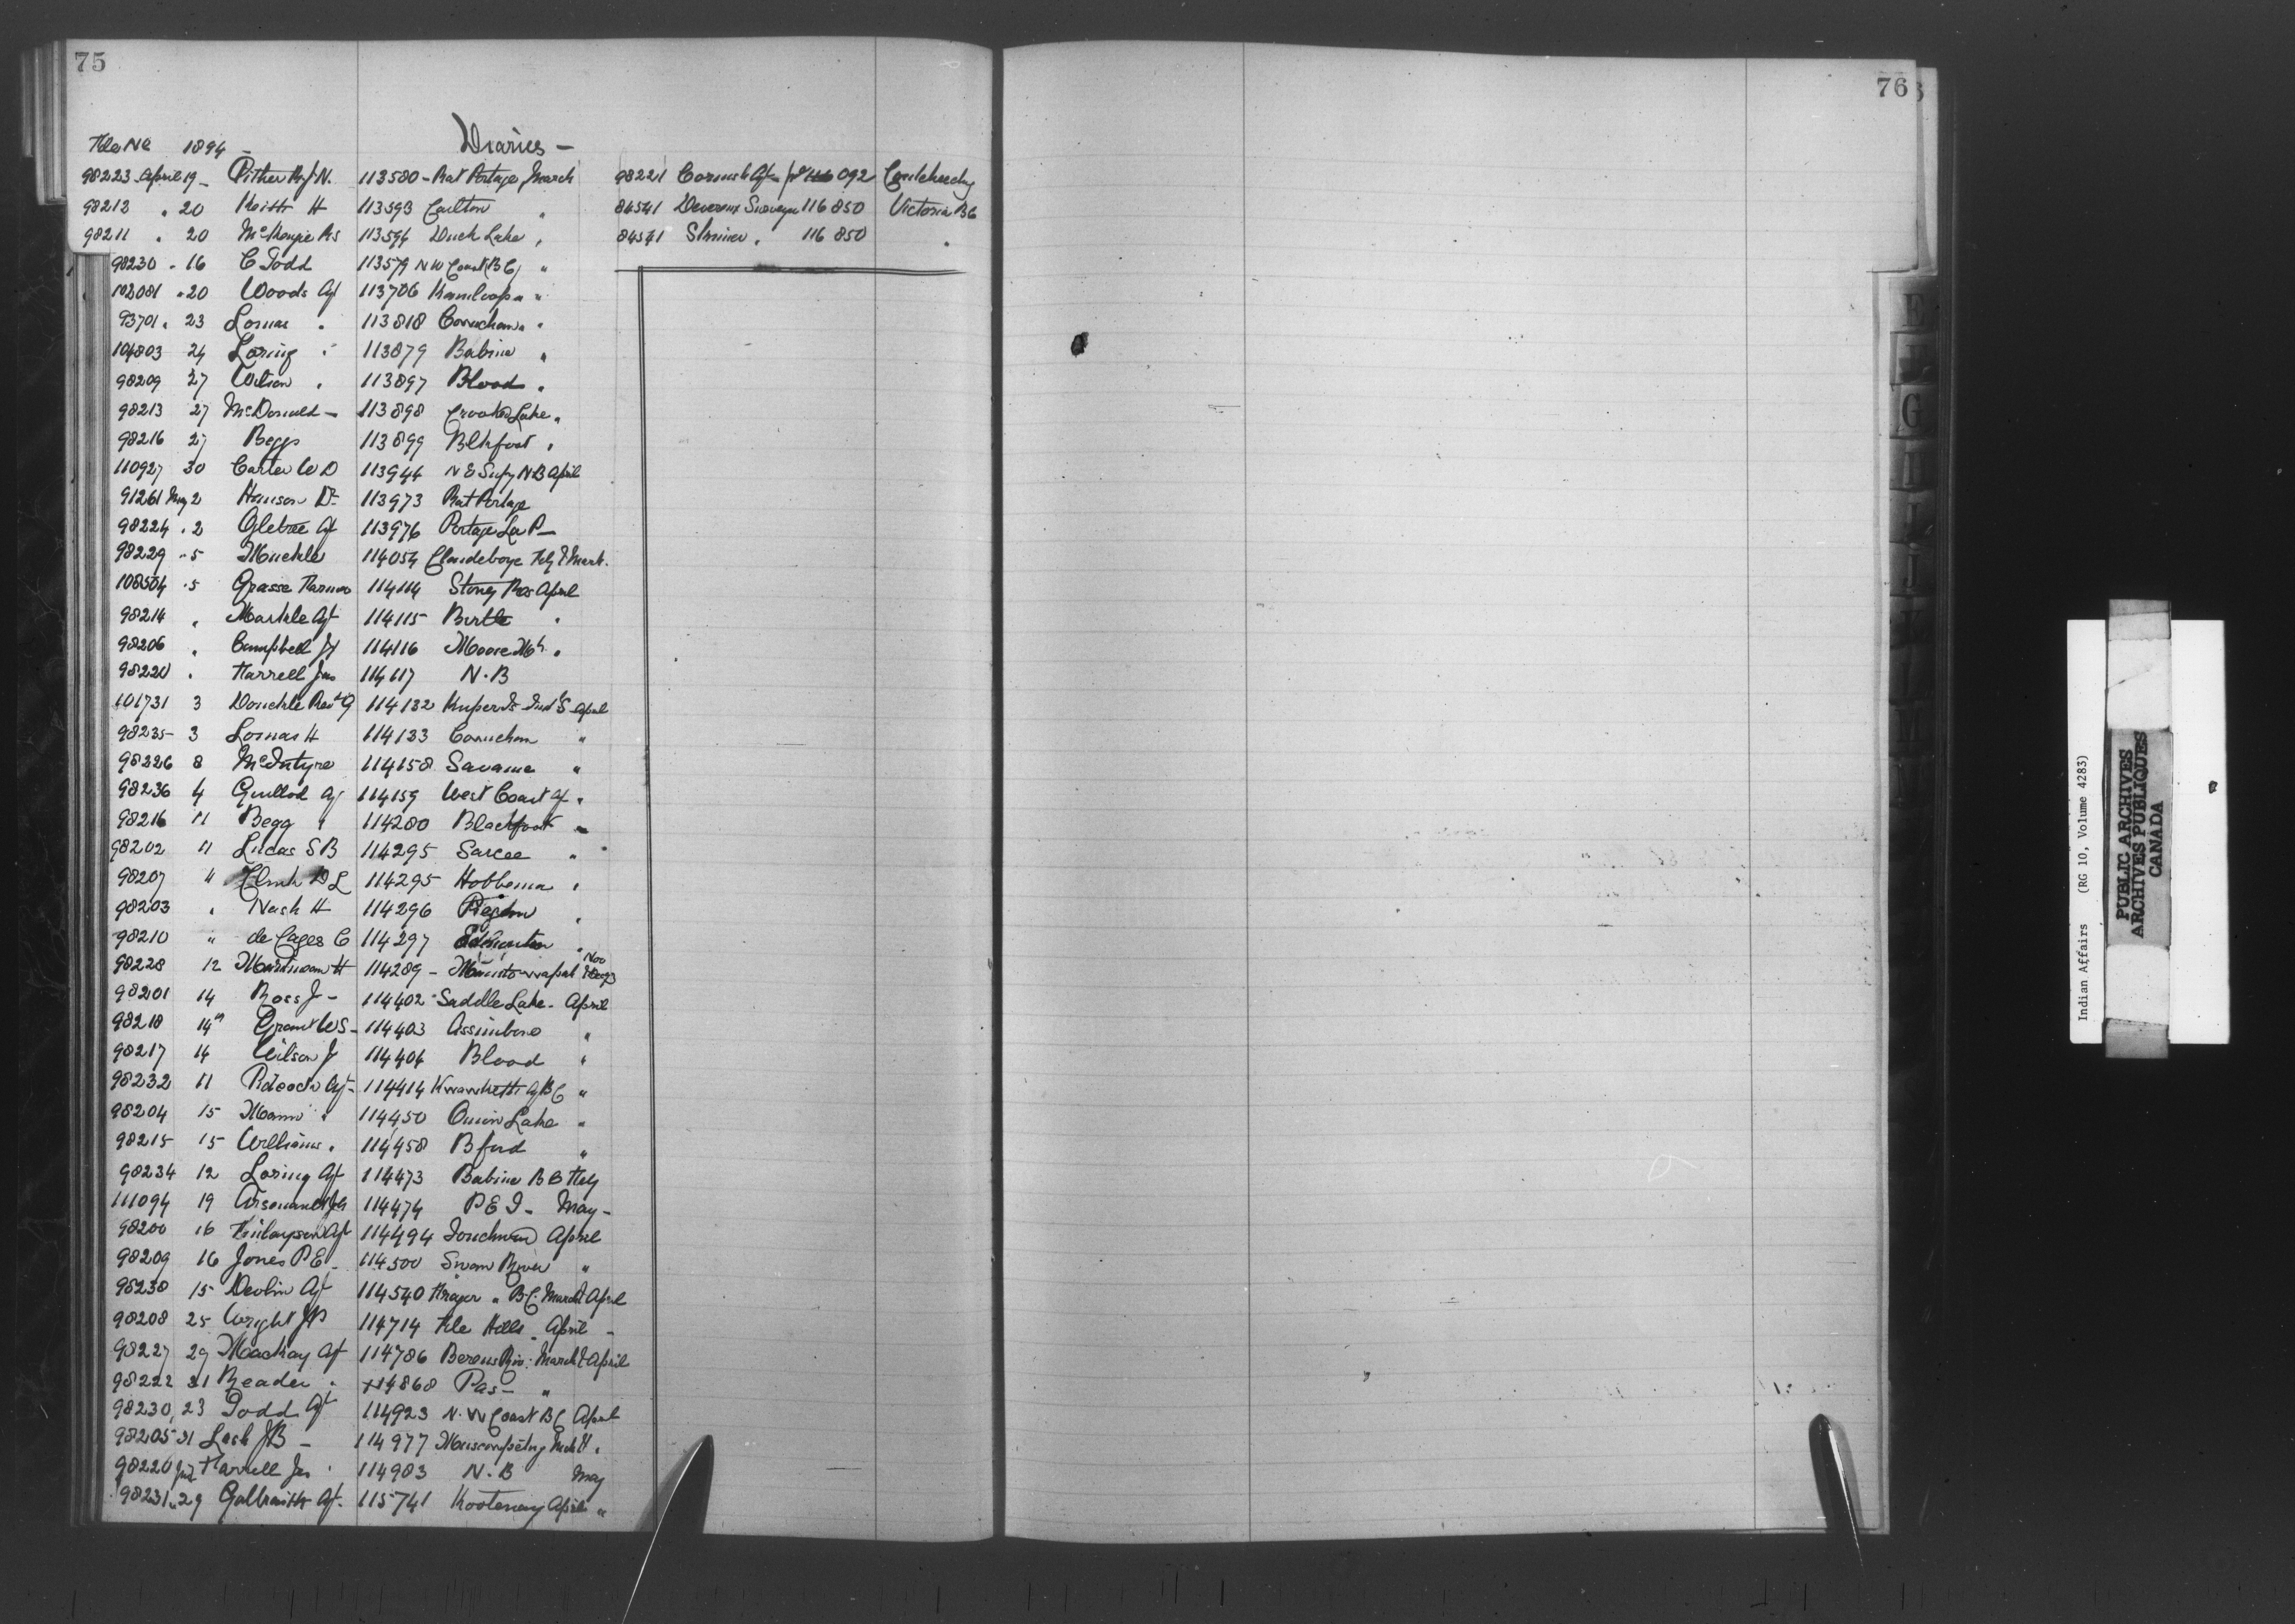 75
76
File No 1894 - Diaries -
98223 April 19 - Pither R.J.N. 113580 - Rat Portage March
98212 " 20 Keith H 113593 Carlton "
98211 " 20 McKenzie RS 113594 Duck Lake "
98230 " 16 C Todd 113579 N W Coast (BC) "
102081 " 20 Woods Agt 113706 Kamloops "
93701 " 23 Lomas " 113818 Cowichan "
104803 24 Loring " 113879 Babine "
98209 27 Wilson " 113897 Blood "
98213 27 McDonald - 113898 Crooked Lake "
98216 27 Begg 113899 Blkfoot "
110927 30 Carter W D 113944 N E Supy N B April
91261 May 2 Hanson Dr 113973 Rat Portage
98224 " 2 Agt 113976 Portage La P -
98229 " 5 Muckle 114054 Clandeboye Feby & March
108504 " 5 Grasse Farmer 114114 Stoney Res April
98214 " Markle Agt 114115 Birtle "
98206 " Campbell JJ 114116 Moose Mt "
98220 " Farrell Jas 114117 N.B
101731 3 Donckle Revd G 114132 Kuper Is Ind S April
98235 3 Lomas H 114133 Cowichan "
98226 8 McIntyre 114158 Savanne "
98236 4 Guillod Agt 114159 West Coast Agt "
98216 11 Begg " 114280 Blackfoot "
98202 11 Lucas S B 114295 Sarcee "
98207 " Clink D L 114295 Hobbema "
98203 " Nash H 114296 Piegan "
98210 " de Cazes C 114297 Edmonton "
98228 12 Martineau H 114289 - Manitowapah Nov
98201 14 Ross J - 114402 Saddle Lake - April
98218 14th Grant W S - 114403 Assiniboine "
98217 14 Wilson J 114404 Blood "
98232 11 Pidcock Agt - 114414 Kwawkewlth Agt BC "
98204 15 Mann " 114450 Onion Lake "
98215 15 Williams " 114458 B ford "
98234 12 Loring Agt 114473 Babine B C Feby
111094 19 Arsenault JO 114474 P E I - May -
98200 16 Finlayson Agt 114494 Touchwood April
98209 16 Jones P E - 114500 Swan River "
98238 15 Devlin Agt 114540 Fraser " B.C. March & April
98208 25 Wright JP 114714 File Hills - April -
98227 29 Mackay Agt 114786 Berens Riv: March & April
98222 31 Reader " 114868 Pas - "
98230, 23 Todd Agt 114923 N. W Coast B C April
98205 31 Lash JB - 114977 Muscowpetung
98220 Farrell Jas " 114983 N. B May
98231 " 29 Galbraith Agt - 115741 Kootenay April "
98221 Cornish Agt 092 Coutcheeching
84541 Devereux Surveyor 116850 Victoria BC
84541 Skinner " 116850 "
E
G
I
J
M
Indian Affairs (RG 10, Volume 4283)
PUBLIC ARCHIVES
ARCHIVES PUBLIQUES
CANADA